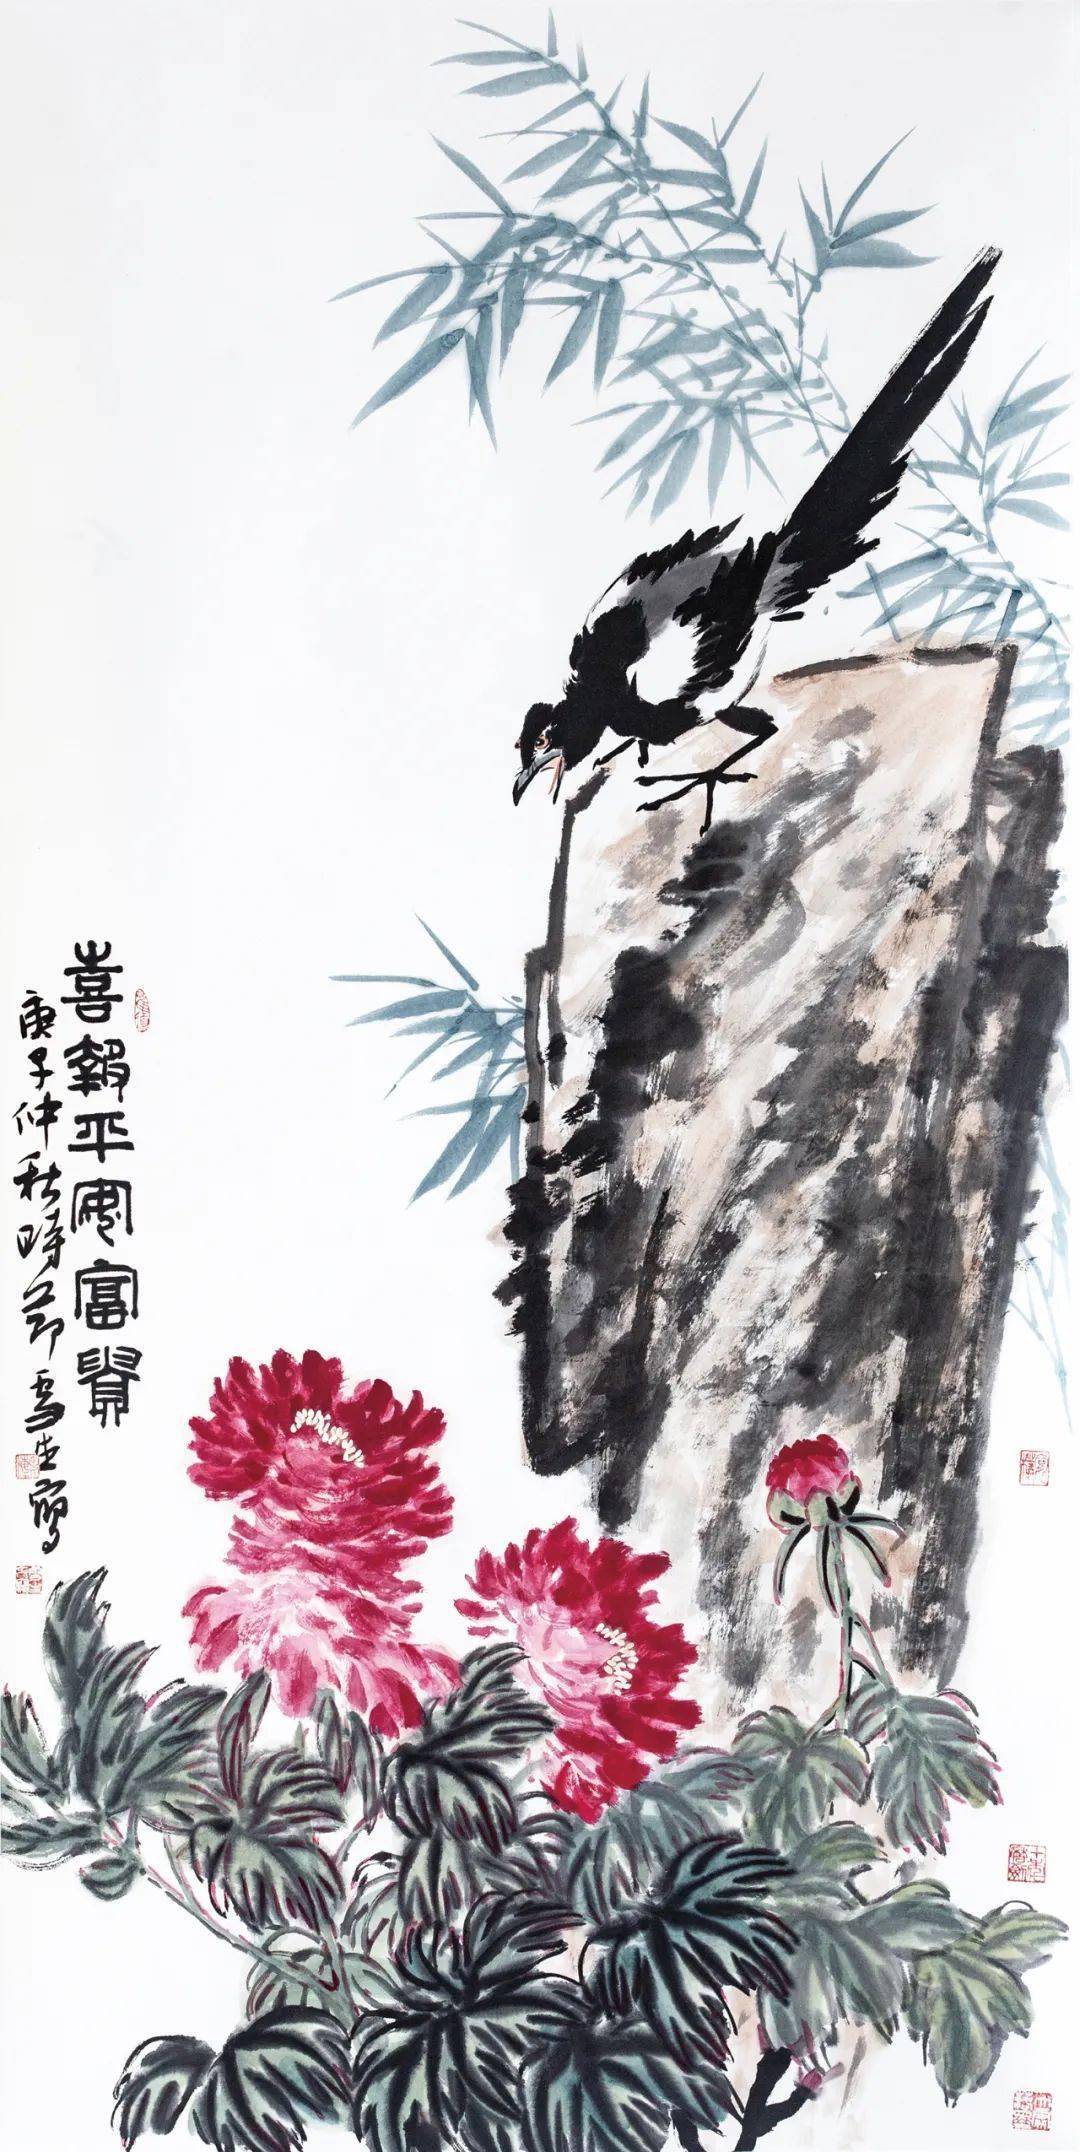 喜報平安富貴
庚子仲秋時節雪生寫